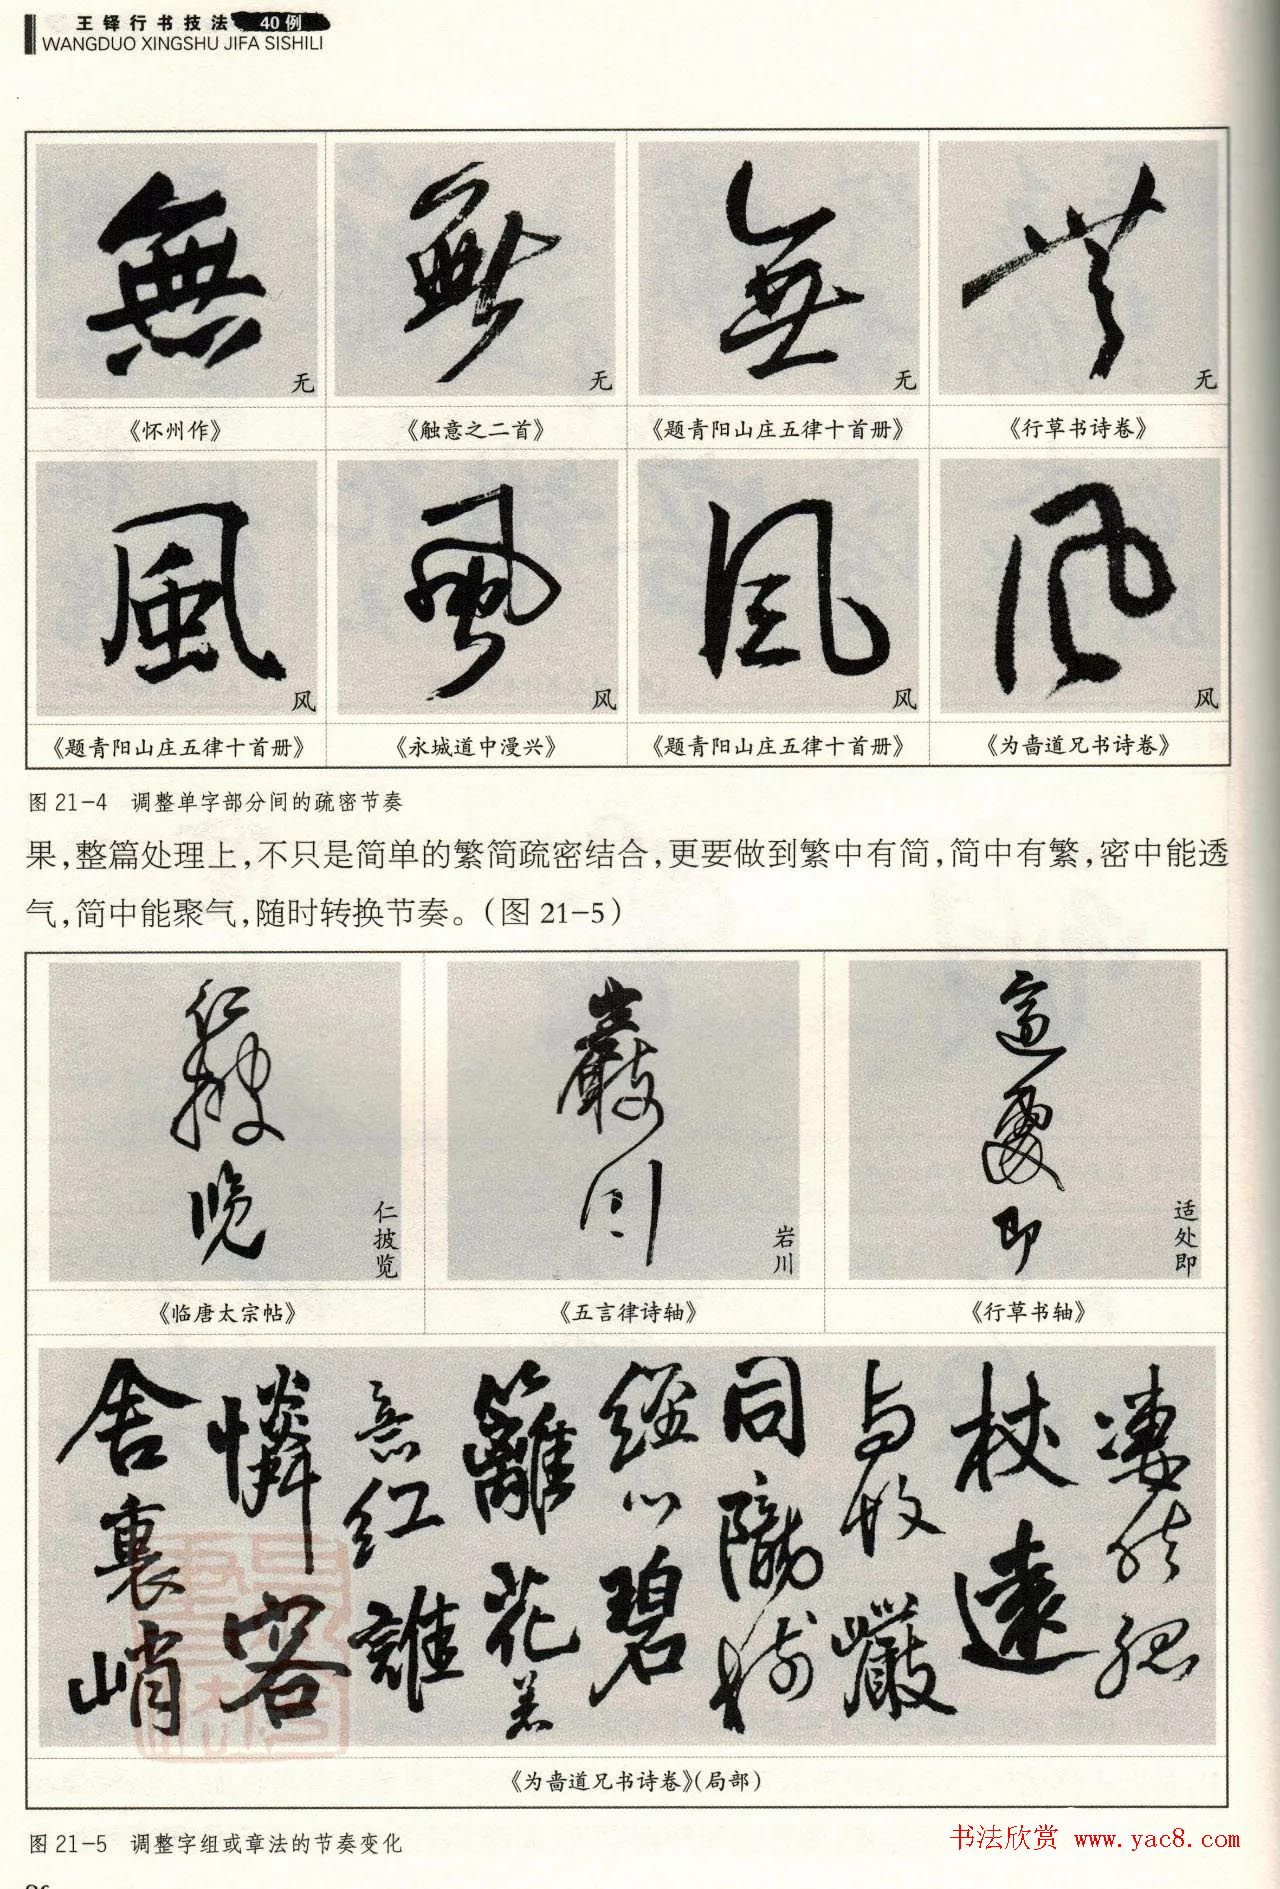 王铎行书技法 40例
WANGDUO XINGSHU JIFA SISHILI
無 無 無 無
无 无 无 无
《怀州作》 《触意之二首》 《题青阳山庄五律十首册》 《行草书诗卷》
風 風 風 風
风 风 风 风
《题青阳山庄五律十首册》 《永城道中漫兴》 《题青阳山庄五律十首册》 《为啬道兄书诗卷》
图 21-4 调整单字部分间的疏密节奏
果，整篇处理上，不只是简单的繁简疏密结合，更要做到繁中有简，简中有繁，密中能透
气，简中能聚气，随时转换节奏。（图 21-5）
仁披览 岩川 适处即
《临唐太宗帖》 《五言律诗轴》 《行草书轴》
杖遠
与故巖
同隴
經心碧
籬花
意紅誰
憐容
舍裏峭
《为啬道兄书诗卷》（局部）
图 21-5 调整字组或章法的节奏变化
书法欣赏 www.yac8.com